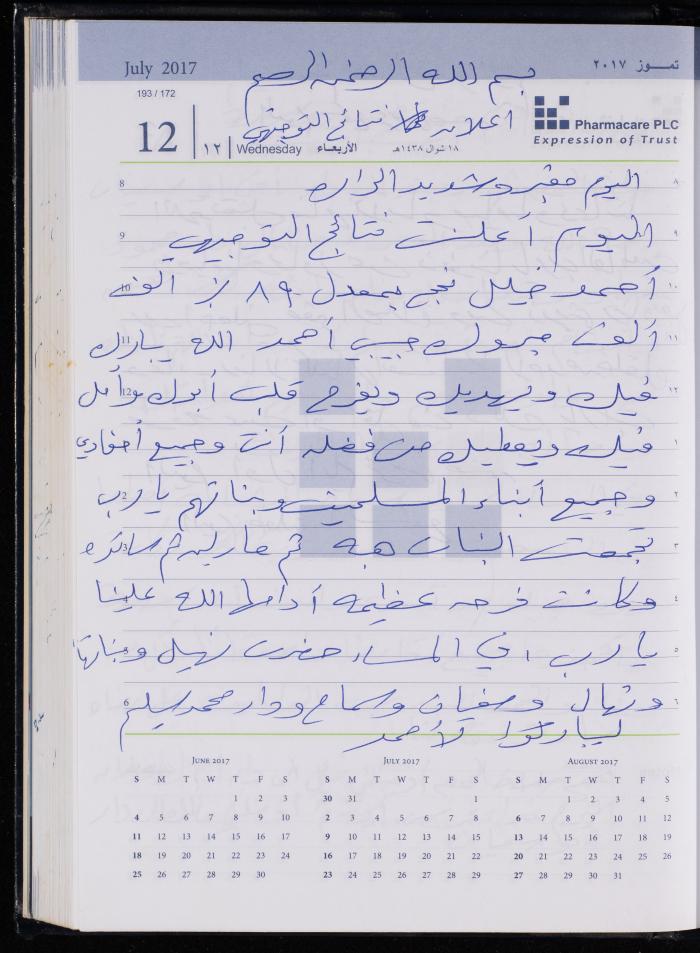 July 2017
تمـــوز ٢٠١٧
بسم الله الرحمن الرحيم
193 / 172
12
١٢
اعلان نتائج التوجيهي
Wednesday الأربعاء ١٨ شوال ١٤٣٨هـ
Pharmacare PLC
Expression of Trust
اليوم مغبر وشديد الحرارة
اليوم أعلنت نتائج التوجيهي
أحمد خليل نجح بمعدل ٨٩ % الف
ألف مبروك حبيبي أحمد الله يبارك
فيك ويهديك ويفرح قلب أبوك وأهل
فيك ويعطيك من فضله أنت وجميع أحفادي
وجميع أبناء المسلمين وبناتهم يا رب
تجمعت البنات هبه ثم ثم سائده
وكانت فرحه عظيمه أدامها الله علينا
يا رب في المساء حضرت نهيل وبناتها
ونهال وسفيان وسماح ودار محمد سليم
ليباركوا لأحمد
8 ٨
9 ٩
10 ١٠
11 ١١
12 ١٢
1 ١
2 ٢
3 ٣
4 ٤
5 ٥
6 ٦
JUNE 2017
S M T W T F S
1 2 3
4 5 6 7 8 9 10
11 12 13 14 15 16 17
18 19 20 21 22 23 24
25 26 27 28 29 30
JULY 2017
S M T W T F S
30 31 1
2 3 4 5 6 7 8
9 10 11 12 13 14 15
16 17 18 19 20 21 22
23 24 25 26 27 28 29
AUGUST 2017
S M T W T F S
1 2 3 4 5
6 7 8 9 10 11 12
13 14 15 16 17 18 19
20 21 22 23 24 25 26
27 28 29 30 31